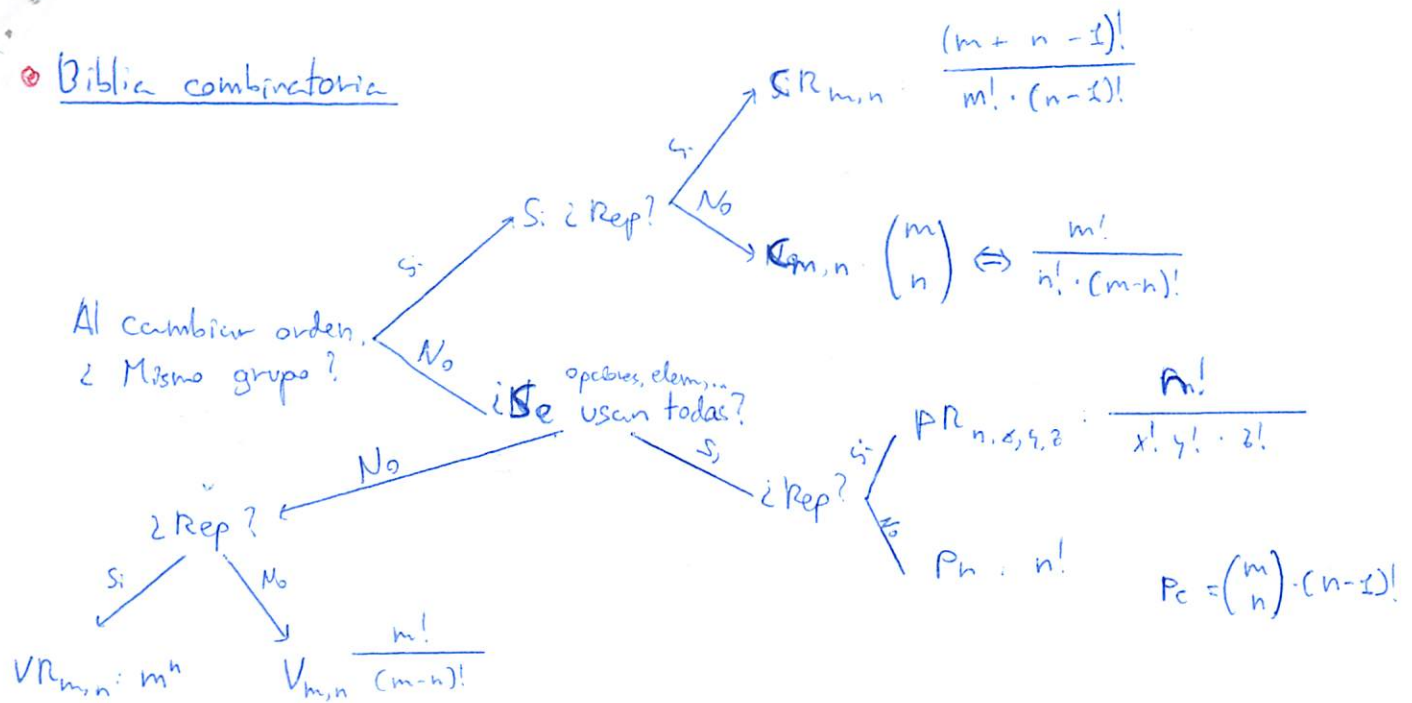 Biblia combinatoria
Al cambiar orden,
¿ Mismo grupo?
Si
Si ¿Rep?
Si
CR m,n . (m + n - 1)! / m! · (n-1)!
No
C m,n . (m n) ⇔ m! / n! · (m-n)!
No
opciones, elem,...
¿Se usan todas?
Si
¿Rep?
Si
PR n,x,y,z : n! / x! y! · z!
No
Pn . n!
Pc = (m n) · (n-1)!
No
¿Rep?
Si
VR m,n : m^n
No
V m,n m! / (m-n)!